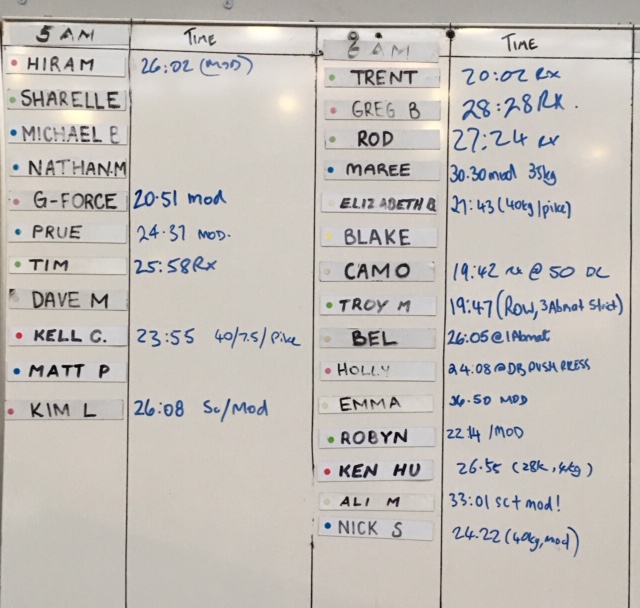 5 AM TIME
HIRAM 26:02 (MOD)
SHARELLE
MICHAEL B
NATHAN.M
G-FORCE 20.51 mod
PRUE 24.37 MOD.
TIM 25:58 Rx
DAVE M
KELL C. 23:55 40/7.5/Pike
MATT P
KIM L 26:08 Sc/Mod
AM TIME
TRENT 20:02 Rx
GREG B 28:28 RX.
ROD 27:24 rx
MAREE 30.30 mod 35kg
ELIZABETH B 27:43 (40kg/pike)
BLAKE
CAMO 19:42 rx @ 50 DL
TROY M 19:47 (Row, 3Abmat Strict)
BEL 26:05 @ 1Abmat
HOLLY 24:08 @ DB PUSH PRESS
EMMA 26.50 MOD
ROBYN 22 14 /MOD
KEN HU 26.55 (28k, 4kg)
ALI M 33:01 sc + mod!
NICK S 24.22 (40kg, mod)